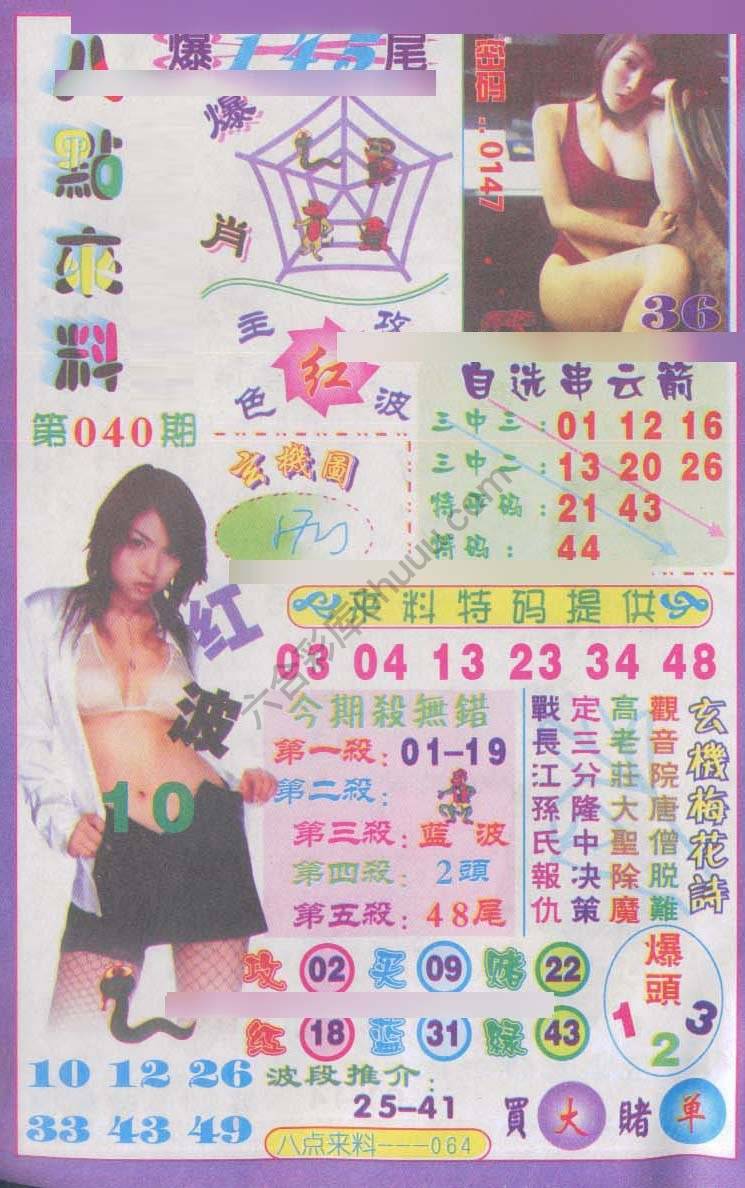 八點來料
爆145尾
爆肖
0147
36
主攻
红
色波
第040期
玄機圖
自选串云箭
三中三：01 12 16
三中二：13 20 26
特平码：21 43
特码：44
來料特码提供
03 04 13 23 34 48
红波
10
今期殺無錯
第一殺：01–19
第二殺：
第三殺：藍波
第四殺：2頭
第五殺：48尾
玄機梅花詩
觀音院唐僧脱難
高老莊大聖除魔
定三分隆中决策
戰長江孫氏報仇
攻 02 买 09 赌 22
红 18 蓝 31 绿 43
爆頭
1 2 3
10 12 26
33 43 49
波段推介：
25–41
買大賭单
八点来料---064
六合彩库
huuu.com